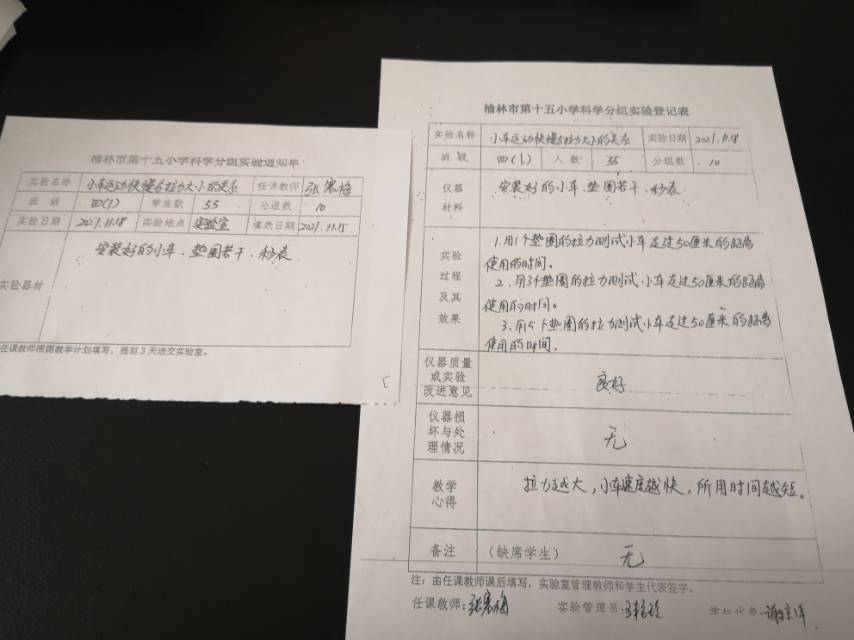 榆林市第十五小学科学分组实验通知单
实验名称 小车运动快慢与拉力大小的关系 任课教师 张寒梅
班 级 四(1) 学生数 55 分组数 10
实验日期 2021.11.18 实验地点 实验室 填表日期 2021.11.15
实验器材 安装好的小车、垫圈若干、秒表
任课教师根据教学计划填写，提前3天送交实验室。
榆林市第十五小学科学分组实验登记表
实验名称 小车运动快慢与拉力大小的关系 实验日期 2021.11.18
班 级 四(1) 人 数 55 分组数 10
仪器
材料
安装好的小车、垫圈若干、秒表
实验
过程
及其
效果
1.用1个垫圈的拉力测试小车走过50厘米的距离
使用的时间。
2.用3个垫圈的拉力测试小车走过50厘米的距离
使用的时间。
3.用5个垫圈的拉力测试小车走过50厘米的距离
使用的时间。
仪器质量
或实验
改进意见
良好
仪器损
坏与处
理情况
无
教学
心得
拉力越大，小车速度越快，所用时间越短。
备注 (缺席学生) 无
注：由任课教师课后填写，实验室管理教师和学生代表签字。
任课教师：张寒梅 实验管理员： 学生代表：